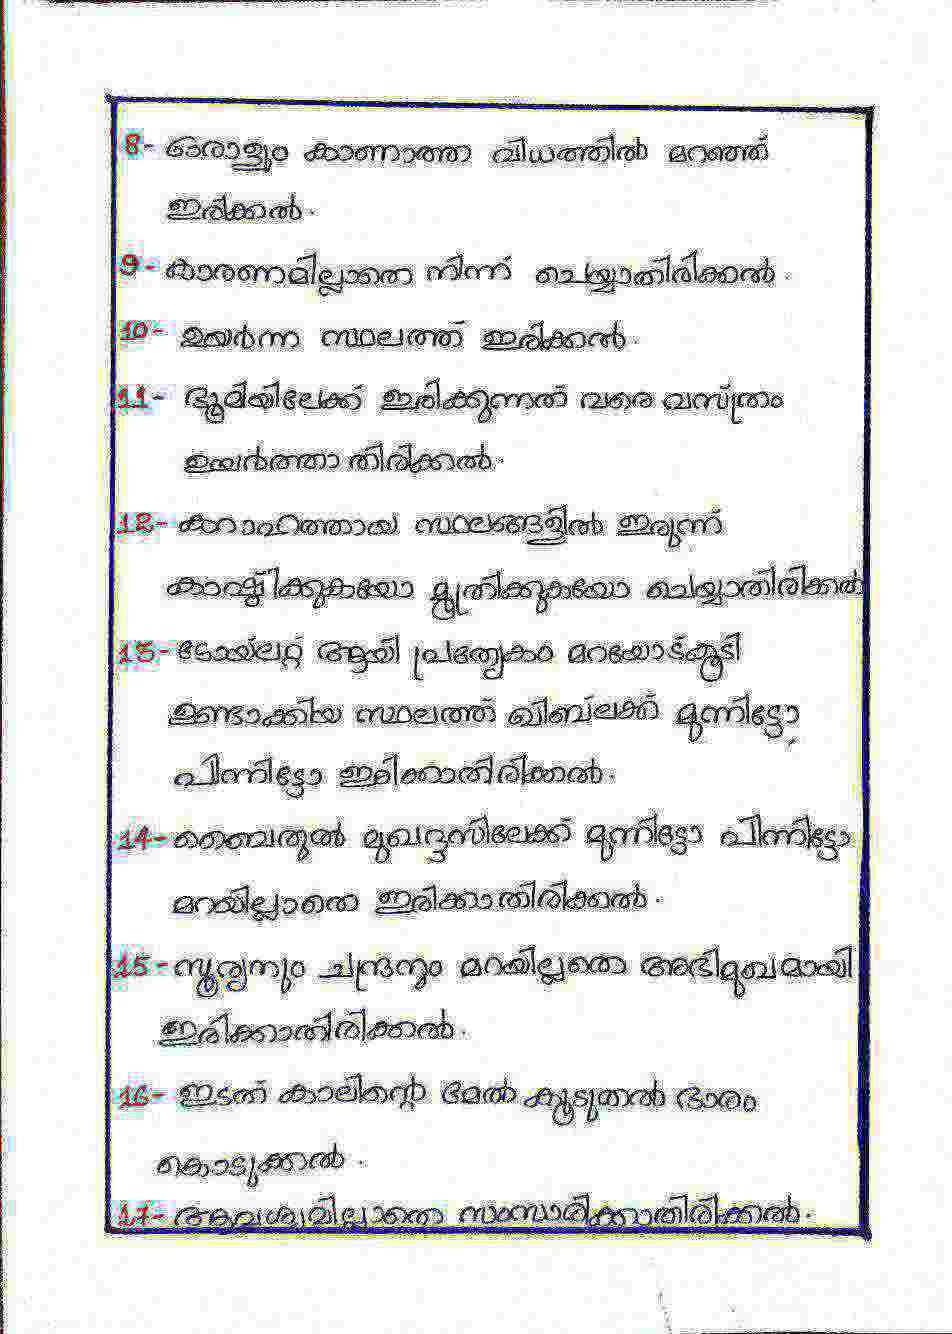 8- ഒരാളും കാണാത്ത വിധത്തിൽ മറഞ്ഞ്
ഇരിക്കൽ.
9- കാരണമില്ലാതെ നിന്ന് ചെയ്യാതിരിക്കൽ.
10- ഉയർന്ന സ്ഥലത്ത് ഇരിക്കൽ.
11- ഭൂമിയിലേക്ക് ഇരിക്കുന്നത് വരെ വസ്ത്രം
ഉയർത്താതിരിക്കൽ.
12- കറാഹത്തായ സ്ഥലങ്ങളിൽ ഇരുന്ന്
കാഷ്ടിക്കുകയോ മൂത്രിക്കുകയോ ചെയ്യാതിരിക്കൽ
13- ടോയ്ലറ്റ് ആയി പ്രത്യേകം മറയോട്കൂടി
ഉണ്ടാക്കിയ സ്ഥലത്ത് ഖിബ്ലക്ക് മുന്നിട്ടോ
പിന്നിട്ടോ ഇരിക്കാതിരിക്കൽ.
14- ബൈതുൽ മുഖദ്ദസിലേക്ക് മുന്നിട്ടോ പിന്നിട്ടോ
മറയില്ലാതെ ഇരിക്കാതിരിക്കൽ.
15- സൂര്യനും ചന്ദ്രനും മറയില്ലതെ അഭിമുഖമായി
ഇരിക്കാതിരിക്കൽ.
16- ഇടത് കാലിന്റെ മേൽ കൂടുതൽ ഭാരം
കൊടുക്കൽ.
17- ആവശ്യമില്ലാതെ സംസാരിക്കാതിരിക്കൽ.